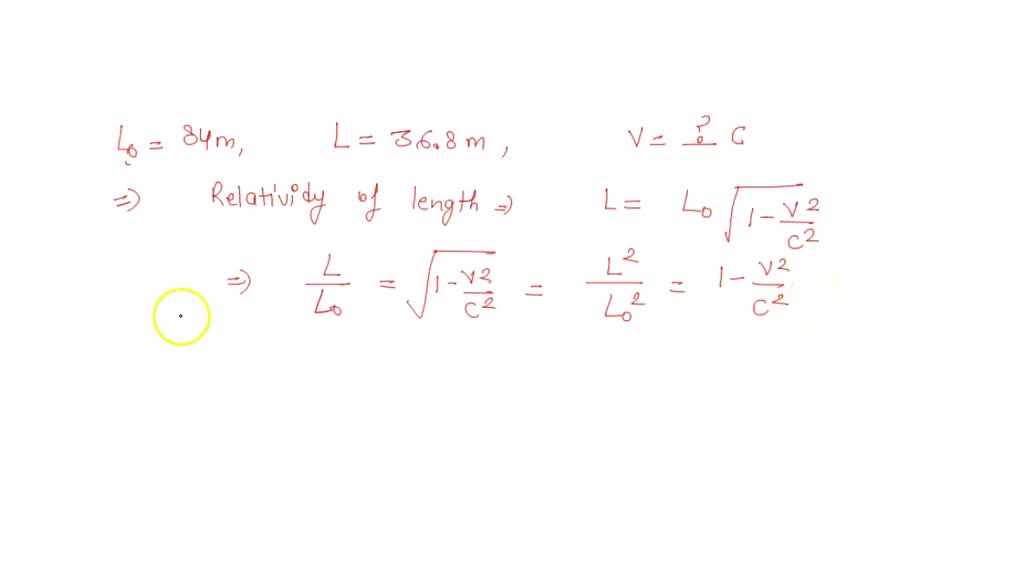 L₀ = 84m, L = 36.8m, V = ? C
=) Relatividy of length =) L = L₀ √(1 - V²/C²)
=) L/L₀ = √(1 - V²/C²) = L²/L₀² = 1 - V²/C²